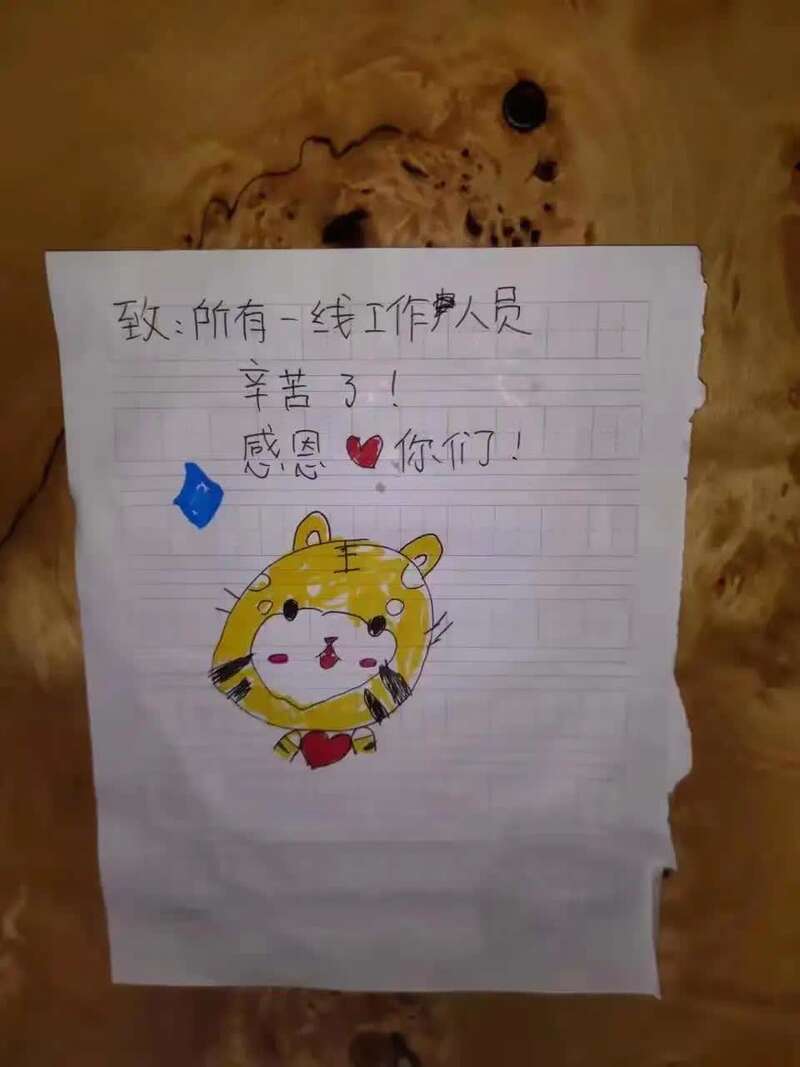 致：所有一线工作人员
辛苦了！
感恩❤你们了！
王